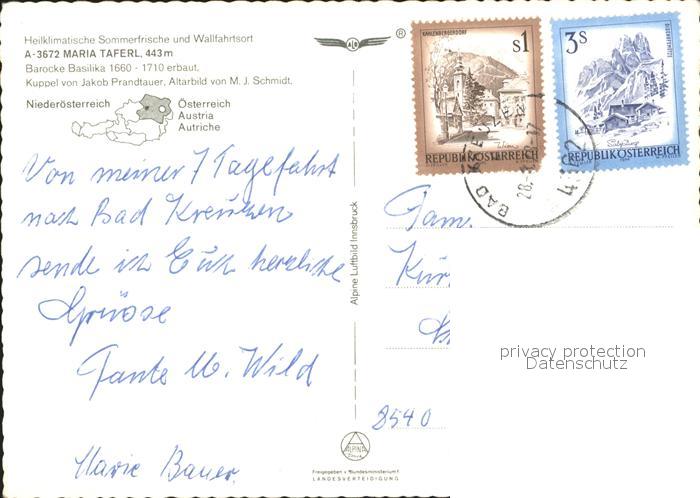 Heilklimatische Sommerfrische und Wallfahrtsort
A-3672 MARIA TAFERL, 443 m
Barocke Basilika 1660 - 1710 erbaut,
Kuppel von Jakob Prandtauer, Altarbild von M. J. Schmidt.
Niederösterreich
Österreich
Austria
Autriche
Von meiner 7 Tagefahrt
nach Bad Kreutzen
sende ich Euch herzliche
Grüsse
Tante M. Wild
Marie Bauer.
Alpine Luftbild Innsbruck
®
KAHLENBERGERDORF
s1
REPUBLIK ÖSTERREICH
3s
REPUBLIK ÖSTERREICH
BAD
28.
4362
Fam.
8540
privacy protection
Datenschutz
ALPINE
Freigegeben v. Bundesministerium f.
LANDESVERTEIDIGUNG